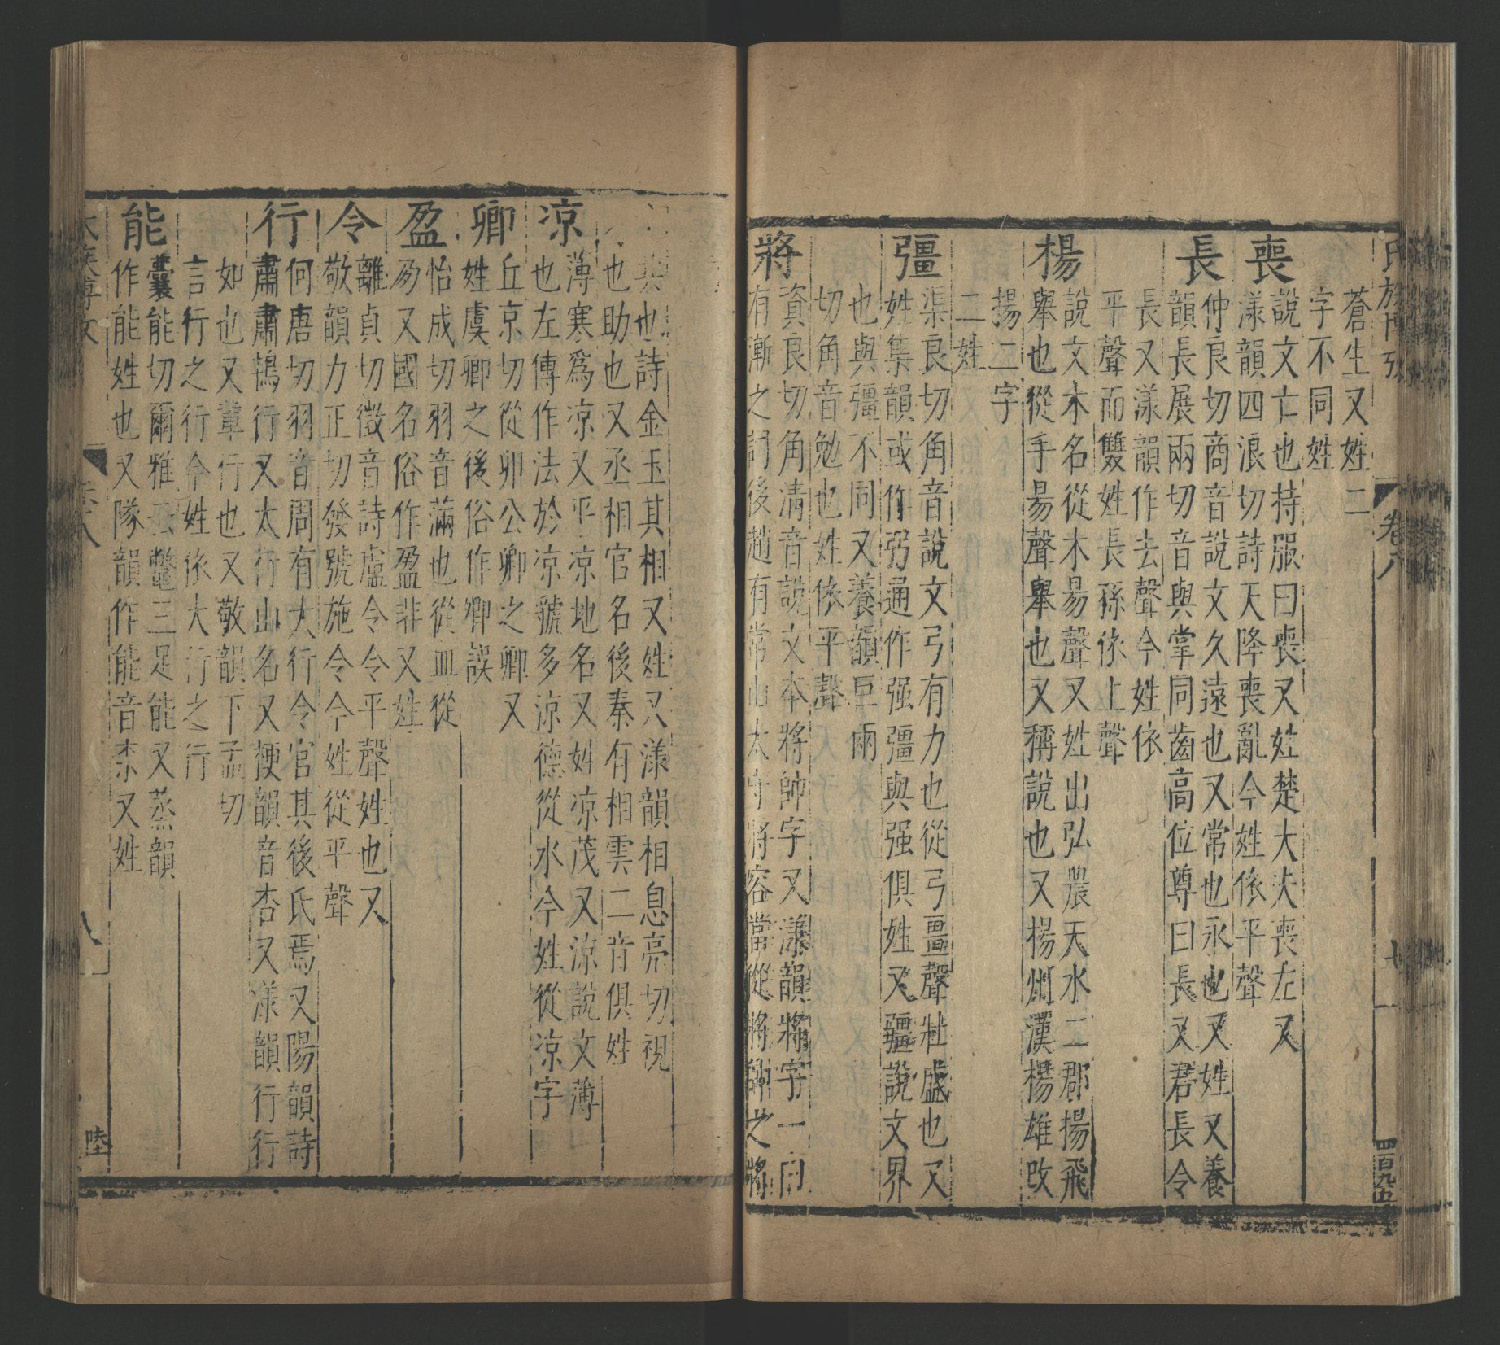 氏族博攷 卷八 七 四百九五
蒼生又姓二
字不同姓
喪 說文亡也持服曰喪又姓楚大夫喪左又
漾韻四浪切詩天降喪亂今姓依平聲
長 仲良切商音說文久遠也又常也永也又姓又養
韻長展兩切音與掌同齒高位尊曰長又君長令
長又漾韻作去聲今姓依
平聲而雙姓長孫依上聲
楊 說文木名從木昜聲又姓出弘農天水二郡揚飛
舉也從手昜聲舉也又稱說也又楊州漢楊雄攺
揚二字
二姓
彊 渠良切角音說文弓有力也從弓畺聲壯盛也又
姓集韻或作弜通作强彊與强俱姓又疆說文界
也與彊不同又養韻巨兩
切角音勉也姓依平聲
將 資良切角清音說文本將帥字又漾韻將字一曰
有漸之詞後趙有常山太守將容當從將帥之將
也詩金玉其相又姓又漾韻相息亮切視
也助也又丞相官名後秦有相雲二音俱姓
凉 薄寒爲凉又平凉地名又姓凉茂又涼說文薄
也左傳作法於凉號多涼德從水今姓從凉字
卿 丘京切從卯公卿之卿又
姓虞卿之後俗作卿誤
盈 怡成切羽音滿也從皿從
夃又國名俗作盈非又姓
令 離貞切徵音詩盧令令平聲姓也又
敬韻力正切發號施令今姓從平聲
行 何唐切羽音周有大行令官其後氏焉又陽韻詩
肅肅鴇行又太行山名又梗韻音杏又漾韻行行
如也又輩行也又敬韻下孟切
言行之行今姓依大行之行
能 囊能切爾雅鼈三足能又蒸韻
作能姓也又隊韻作能音柰又姓
卷八 八 陸